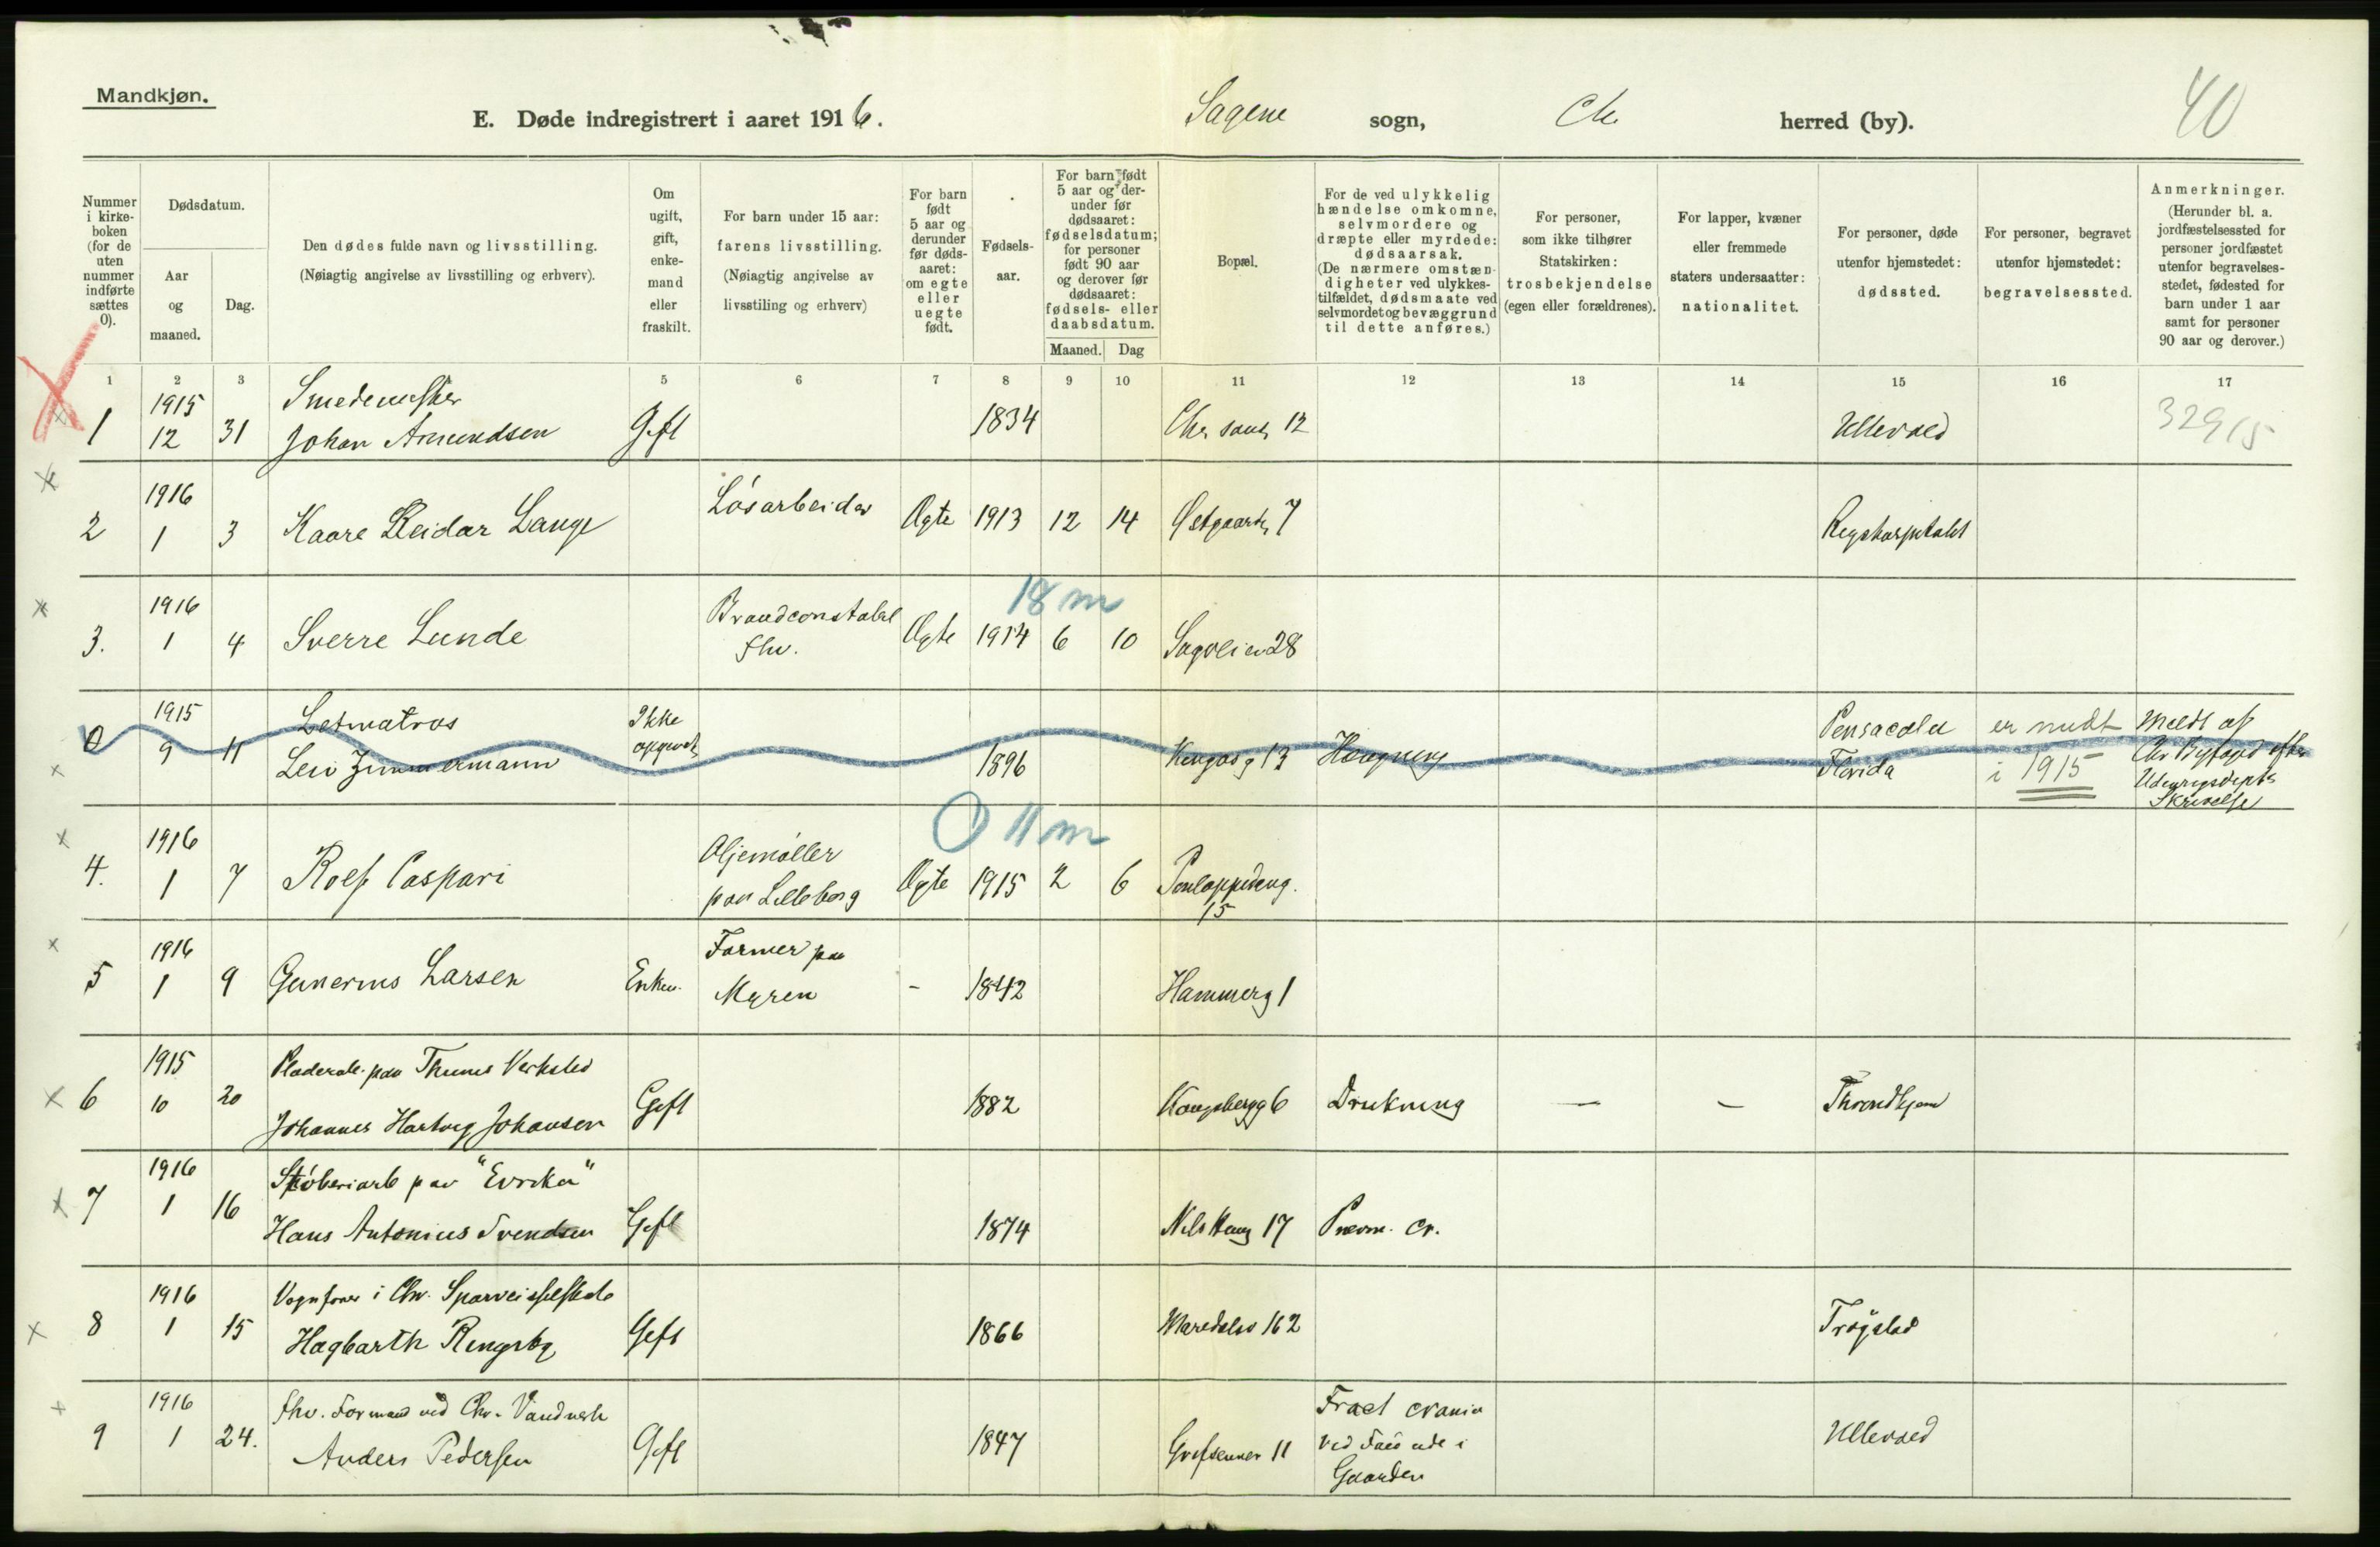 Mandkjøn.
E. Døde indregistrert i aaret 1916.
Sagene sogn, Ch. herred (by).
40
Nummer i kirke-boken (for de uten nummer indførte sættes 0).
Dødsdatum.
Aar og maaned.
Dag.
Den dødes fulde navn og livsstilling.
(Nøiagtig angivelse av livsstilling og erhverv).
Om ugift, gift, enke-mand eller fraskilt.
For barn under 15 aar: farens livsstilling.
(Nøiagtig angivelse av livsstiling og erhverv)
For barn født 5 aar og derunder før døds-aaret: om egte eller uegte født.
Fødsels-aar.
For barn født 5 aar og der-under før dødsaaret: fødselsdatum; for personer født 90 aar og derover før dødsaaret: fødsels- eller daabsdatum.
Maaned. Dag
Bopæl.
For de ved ulykkelig hændelse omkomne, selvmordere og dræpte eller myrdede: dødsaarsak.
(De nærmere omstæn-digheter ved ulykkes-tilfældet, dødsmaate ved selvmordet og bevæggrund til dette anføres.)
For personer, som ikke tilhører Statskirken: trosbekjendelse (egen eller forældrenes).
For lapper, kvæner eller fremmede staters undersaatter: nationalitet.
For personer, døde utenfor hjemstedet: dødssted.
For personer, begravet utenfor hjemstedet: begravelsessted.
Anmerkninger.
(Herunder bl. a. jordfæstelsessted for personer jordfæstet utenfor begravelses-stedet, fødested for barn under 1 aar samt for personer 90 aar og derover.)
1 2 3 5 6 7 8 9 10 11 12 13 14 15 16 17
1915 Smedemester
1 12 31 Johan Amundsen Gift 1834 Chr sands 12 Ullevaal 329/15
1916 Løsarbeider
2 1 3 Kaare Reidar Lange Ægte 1913 12 14 Østgaards 7 Rigshospitalet
18 m
1916 Brandconstabel
3. 1 4 Sverre Lunde fhv. Ægte 1914 6 10 Sagveien 28
1915 Letmatros Ikke Pensacola er meldt Meldt af
0 9 11 Levi Zimmermann opgivet 1896 13 Hængning Florida i 1915 Chr Byfoged efter
Udenrigsdepts
Skrivelse
0 11 m
1916 Oljemøller
4. 1 7 Rolf Caspari paa Lilleborg Ægte 1915 2 6
15
1916 Former paa
5 1 9 Gunerius Larsen Enkem. Myren - 1842 Hammerg 1
1915 Pladearb. paa Thunes Verksted
6 10 20 Johannes Hartvig Johansen Gift 1882 Kongsbergg 6 Drukning — – Throndhjem
1916 Støberiarb paa "Evrika"
7 1 16 Hans Antonius Svendsen Gift 1874 Nils Haug 17 Pneum. cr.
1916 Vognfører i Chr. Sporveisselskab
8 1 15 Hagbarth Ringsby Gift 1866 Maridalsv 162 Trøgstad
1916 fhv. Formand ved Chr. Vandverk Fract crania
9 1 24. Anders Pedersen Gift 1847 Grefsenver 11 ved Fald ude i Ullevaal
Gaarden